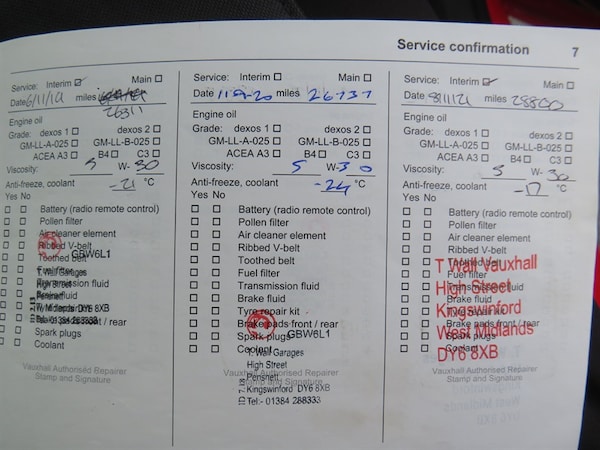 Service confirmation 7
Service: Interim ☑ Main ☐
Date 6/11/19 miles
26311
Engine oil
Grade: dexos 1 ☐ dexos 2 ☐
GM-LL-A-025 ☐ GM-LL-B-025 ☐
ACEA A3 ☐ B4 ☐ C3 ☐
Viscosity: 5 W- 30
Anti-freeze, coolant -21 °C
Yes No
☐ ☐ Battery (radio remote control)
☐ ☐ Pollen filter
☐ ☐ Air cleaner element
☐ ☐ Ribbed V-belt
☐ ☐ Toothed belt
☐ ☐ Fuel filter
☐ ☐ Transmission fluid
☐ ☐ Brake fluid
☐ ☐ Spark plugs
☐ ☐ Coolant
GBW6L1
T. Wall Garages
High Street
Pensnett
DY6 8XB
Vauxhall Authorised Repairer
Stamp and Signature
Service: Interim ☐ Main ☐
Date 11-9-20 miles 26-737
Engine oil
Grade: dexos 1 ☐ dexos 2 ☐
GM-LL-A-025 ☐ GM-LL-B-025 ☐
ACEA A3 ☐ B4 ☐ C3 ☐
Viscosity: 5 W- 30
Anti-freeze, coolant -24 °C
Yes No
☐ ☐ Battery (radio remote control)
☐ ☐ Pollen filter
☐ ☐ Air cleaner element
☐ ☐ Ribbed V-belt
☐ ☐ Toothed belt
☐ ☐ Fuel filter
☐ ☐ Transmission fluid
☐ ☐ Brake fluid
☐ ☐ Tyre repair kit
☐ ☐ Brake pads front / rear
☐ ☐ Spark plugs
☐ ☐ Coolant
GBW6L1
T. Wall Garages
High Street
Pensnett
Kingswinford DY6 8XB
Tel:- 01384 288333
Vauxhall Authorised Repairer
Stamp and Signature
Service: Interim ☑ Main ☐
Date 8/11/21 miles 28800
Engine oil
Grade: dexos 1 ☐ dexos 2 ☐
GM-LL-A-025 ☐ GM-LL-B-025 ☐
ACEA A3 ☐ B4 ☐ C3 ☐
Viscosity: 5 W- 30
Anti-freeze, coolant -17 °C
Yes No
☐ ☐ Battery (radio remote control)
☐ ☐ Pollen filter
☐ ☐ Air cleaner element
☐ ☐ Ribbed V-belt
☐ ☐ Toothed belt
☐ ☐ Fuel filter
☐ ☐ Transmission fluid
☐ ☐ Brake fluid
☐ ☐ Tyre repair kit
☐ ☐ Brake pads front / rear
☐ ☐ Spark plugs
☐ ☐ Coolant
T Wall Vauxhall
High Street
Kingswinford
West Midlands
DY6 8XB
Vauxhall Authorised Repairer
Stamp and Signature